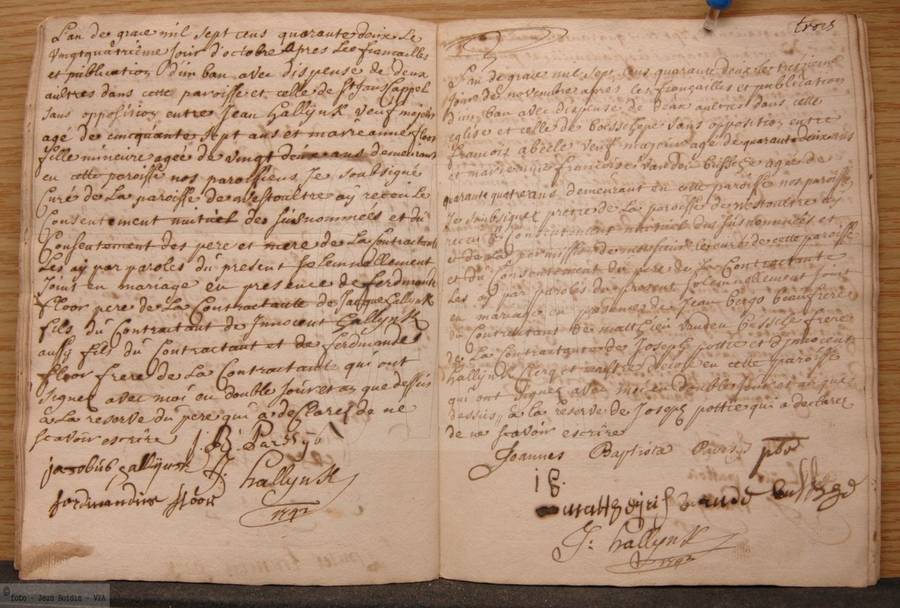 L'an de grace mil sept cens quarante deux Le
vingtquatriême jour d'octobre apres Les fiancailles
et publication d'un ban avec dispense de deux
aultres dans cette paroisse et celle de
sans opposition entre Jean Hallijnk veuf
agé de cincquante sept ans et marieanne floor
fille mineure ageé de vingt deux ans demeurans
en cette paroisse nos paroissiens, Je soubsigné
Curé de La paroisse de Westoultre aÿ receu Le
Consentement mutuel des susnommées et du
Consentement des pere et mere de La Contractante
Les aÿ par paroles du present solemnellement
joins en mariage en presence de ferdinande
floor pere de La Contractante de Jacque Hallijnk
fils du Contractant de Innocent Hallijnk
aussÿ fils du Contractant et de ferdinande
floor frere de La Contractante qui ont
signez avec moi ou double jour et an que dessus
à La reserve du pere qui a declaré de ne
scavoir escrire
jacobus hallijnck J: hallijnk
ferdinandus floor 1742
trois
L'an de grace mil sept cens quarante deux Le
jour de novembre apres les fiançailles et publication
d'un ban avec dispense de deux aultres dans cette
eglise et celle de Boeschepe sans opposition entre
francois abeele veuf agé de quarante deux ans
et marie francoise vanden agée de
quarante quatre ans demeurant en cette paroisse nos paroissiens
Je soubsigné prêtre de La paroisse de Westoultre aÿ
receu Le Consentement mutuel des susnommées et
de La permission de monsieur Le curé de cette paroisse
et du Consentement du pere de La Contractante
Les aÿ par paroles du present solemnellement joint
en mariage en presence de Jean Bergo beaufrere
du Contractant de matthieu vanden frere
de La Contractante de Joseph pottie et d'innocent
hallijnk clerq et maitre d'ecole en cette paroisse
qui ont signez avec moi en double jour et an que
dessus, à La reserve de Joseph pottie qui a declaré
de ne scavoir escrire
Joannes Baptista pbr
J: hallijnk
1742
©foto - Jean Boidin - VVA